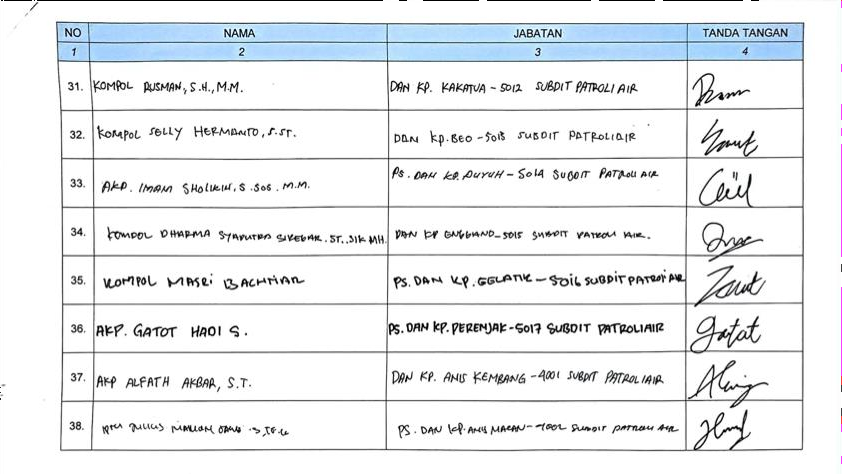 NO NAMA JABATAN TANDA TANGAN
1 2 3 4
31. KOMPOL RUSMAN, S.H., M.M. DAN KP. KAKATUA - 5012 SUBDIT PATROLI AIR
32. KOMPOL SELLY HERMANTO, S.ST. DAN KP. BEO - 5013 SUBDIT PATROLIAIR
33. AKP. IMAM SHOLIKIN, S.SOS. M.M. PS. DAN KP. PUYUH - 5014 SUBDIT PATROLI AIR
34. KOMPOL DHARMA SYAPUTRA SIREGAR. ST., SIK MH. DAN KP ENGGANG - 5015 SUBDIT PATROLI AIR.
35. KOMPOL MASRI BACHTIAR PS. DAN KP. GELATIK - 5016 SUBDIT PATROLI AIR
36. AKP. GATOT HADI S. PS. DAN KP. PERENJAK - 5017 SUBDIT PATROLIAIR gatot
37. AKP ALFATH AKBAR, S.T. DAN KP. ANIS KEMBANG - 4001 SUBDIT PATROLIAIR
38. PS. DAN KP. ANIS MACAN - 4002 SUBDIT PATROLI AIR